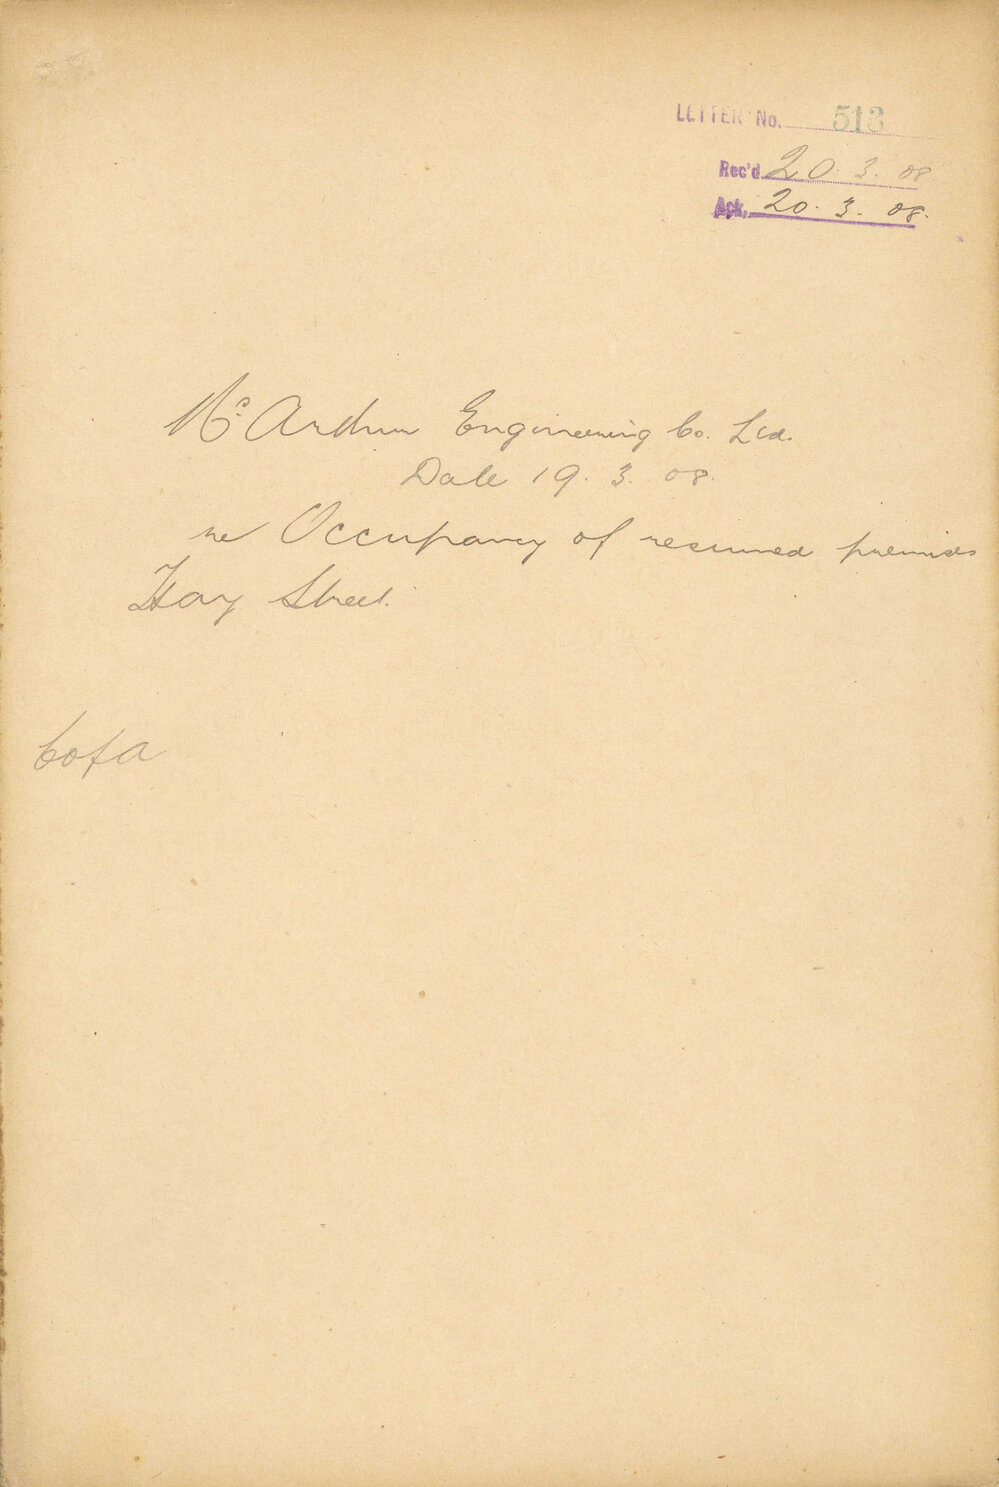 LETTER No. 513
Rec'd 20. 3. 08
Ack. 20. 3. 08.
Mc Arthur Engineering Co. Ltd.
Date 19. 3. 08.
re Occupancy of resumed premises
Hay Street.
C of A